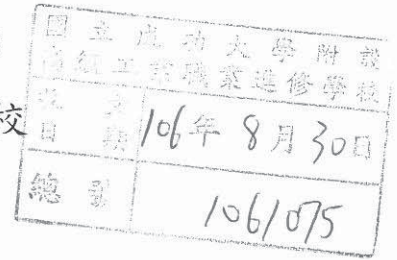 國立成功大學附設
高級工業職業進修學校
校
收文
日期
106年8月30日
總號
1061075